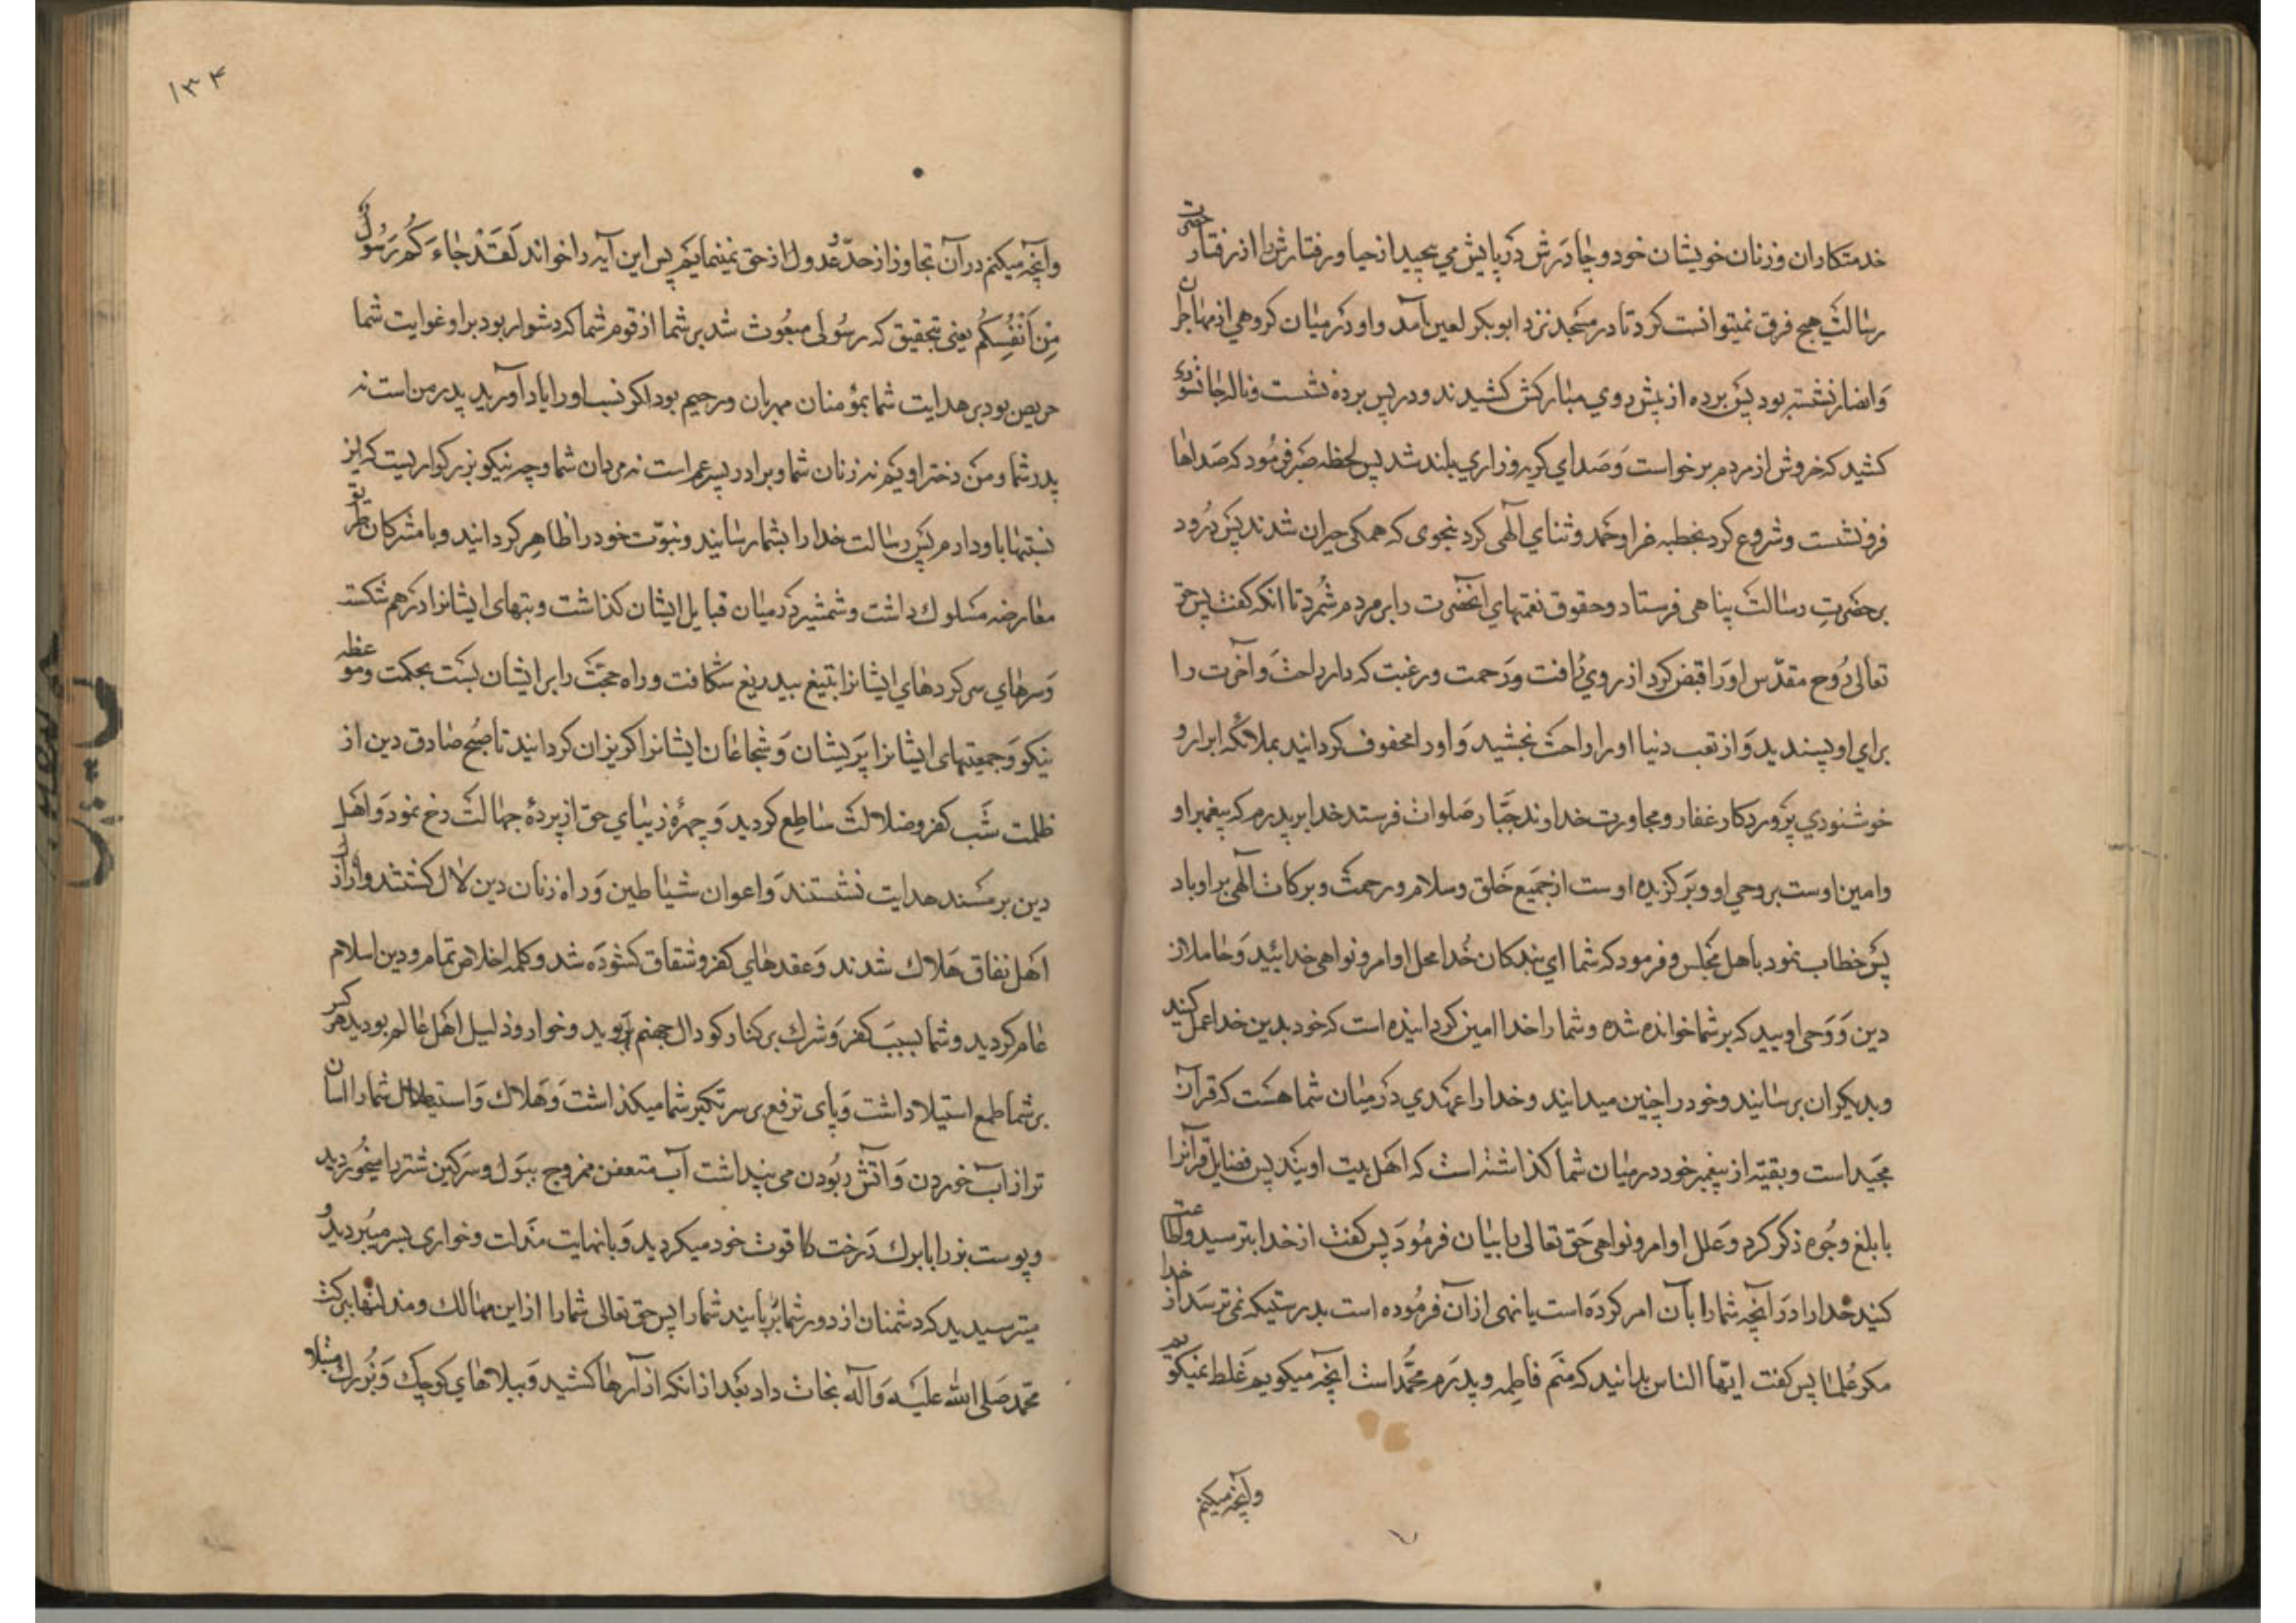 خدمتکاران وزنان خویشان خود وچادرش در پایش می پیچید از حیا ورفتارش را از رفتار حضرت
رسالت هیچ فرق نمیتوانست کرد تا در مسجد نزد ابوبکر لعین آمد واو در میان کروهی از مهاجران
وانصار نشسته بود پس پرده از پیش روی مبارکش کشیدند ودر پس پرده نشست وناله جانسوزی
کشید که خروش از مردم برخواست وصدای کریه وزاری بلند شد پس لحظه صبر فرمود که صداها
فرو نشست وشروع کرد بخطبه غرا وحمد وثنای الهی کرد بنحوی که همکی حیران شدند پس درود
بر حضرت رسالت پناهی فرستاد وحقوق نعمتهای آنحضرت را بر مردم شمرد تا آنکه کفت پس حق
تعالی روح مقدس او را قبض کرد از روی رأفت ورحمت ورغبت که دار راحت وآخرت را
برای او پسندید واز تعب دنیا او را راحت بخشید واورا محفوف کردانید بملائکه ابرار و
خوشنودی پروردکار غفار ومجاورت خداوند جبار صلوات فرستد خدا بر پدرم که پیغمبر او
وامین اوست بر وحی او وبرکزیده اوست از جمیع خلق وسلام ورحمت وبرکات الهی بر او باد
پس خطاب نمود باهل مجلس وفرمود که شما ای بندکان خدا محل اوامر ونواهی خدائید وحاملان
دین ووحی اویید که بر شما خوانده شده وشما را خدا امین کردانیده است که خود بدین خدا عمل کنید
وبدیکران برسانید وخود را چنین میدانید وخدا را عهدی در میان شما هست که قرآن
مجید است وبقیه از پیغمبر خود در میان شما کذاشته است که اهل بیت اویند پس فضایل قرآنرا
بابلغ وجوه ذکر کرد وعلل اوامر ونواهی حق تعالی را بیان فرمود پس کفت از خدا بترسید واطاعت
کنید خدا را در آنچه شما را بآن امر کرده است یا نهی از آن فرموده است بدرستیکه نمی ترسد از خدا
مکر علما پس کفت ایها الناس بدانید که منم فاطمه وپدرم محمد است آنچه میکویم غلط نمیکویم
وآنچه میکنم
۱۳۴
وآنچه میکنم در آن تجاوز از حد وعدول از حق نمینمایم پس این آیه را خواند لَقَدْ جَاءَكُمْ رَسُولٌ
مِنْ أَنْفُسِكُمْ یعنی بتحقیق که رسولی مبعوث شد بر شما از قوم شما که دشوار بود بر او غوایت شما
حریص بود بر هدایت شما بمؤمنان مهربان ورحیم بود اکر نسب اورا یاد آورید پدر من است نه
پدر شما ومن دختر اویم نه زنان شما وبرادر پسر عم است نه مردان شما وچه نیکو بزرکواریست که این
نسبتها باو دارم پس رسالت خدا را بشما رسانید ونبوت خود را ظاهر کردانید وبا مشرکان طریق
معارضه مسلوك داشت وشمشیر در میان قبایل ایشان کذاشت وبتهای ایشانرا در هم شکست
وسرهای سرکردهای ایشانرا بتیغ بیدریغ شکافت وراه حجت را بر ایشان بست بحکمت وموعظه
نیکو وجمعیتهای ایشانرا پریشان وشجاعان ایشانرا کریزان کردانید تا صبح صادق دین از
ظلمت شب کفر وضلالت ساطع کردید وچهرهٔ زیبای حق از پردهٔ جهالت رخ نمود واهل
دین بر مسند هدایت نشستند واعوان شیاطین وراه زنان دین لال کشتند
اهل نفاق هلاك شدند وعقدهای کفر وشقاق کشوده شد وکلمه اخلاص تمام ودین اسلام
عام کردید وشما بسبب کفر وشرك بر کنار کودال جهنم بودید وخوار وذلیل اهل عالم بودید هر کس
بر شما طمع استیلا داشت وپای ترفع بر سر تکبر شما میکذاشت وهلاك واستیصال شما را آسان
تر از آب خوردن وآتش ربودن می پنداشت آب متعفن ممزوج ببول وسرکین شتر را میخوردید
وپوست بز را با برك درخت کا قوت خود میکردید وبا نهایت مذلت وخواری بسر میبردید و
میترسیدید که دشمنان از دور شما بربایند شما را پس حق تعالی شما را از این مهالك ومذلتها ببرکت
محمد صلی الله علیه وآله نجات داد بعد از آنکه از آزارها کشید وببلاهای کوچك وبزرك مبتلا